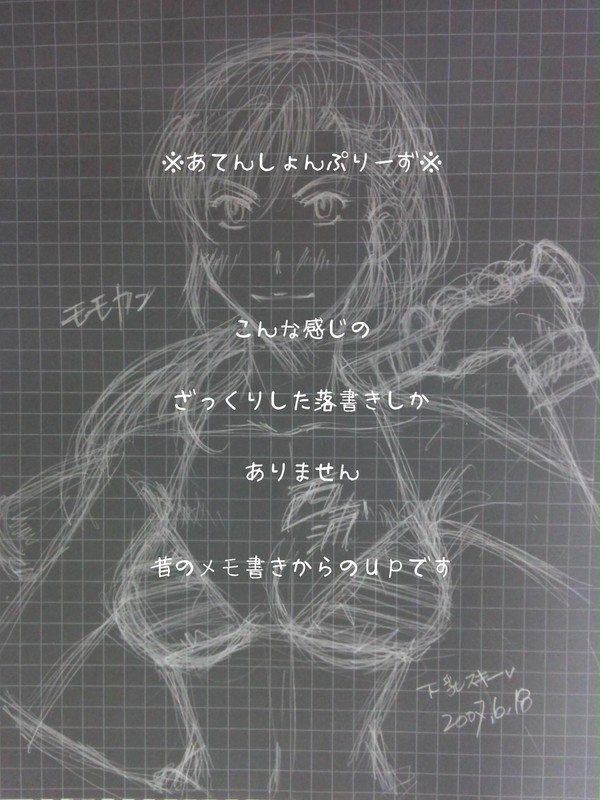 ※あてんしょんぷりーず※
モモカン
こんな感じの
ざっくりした落書きしか
ありません
昔のメモ書きからのｕｐです
下乳スキー
2007.6.18